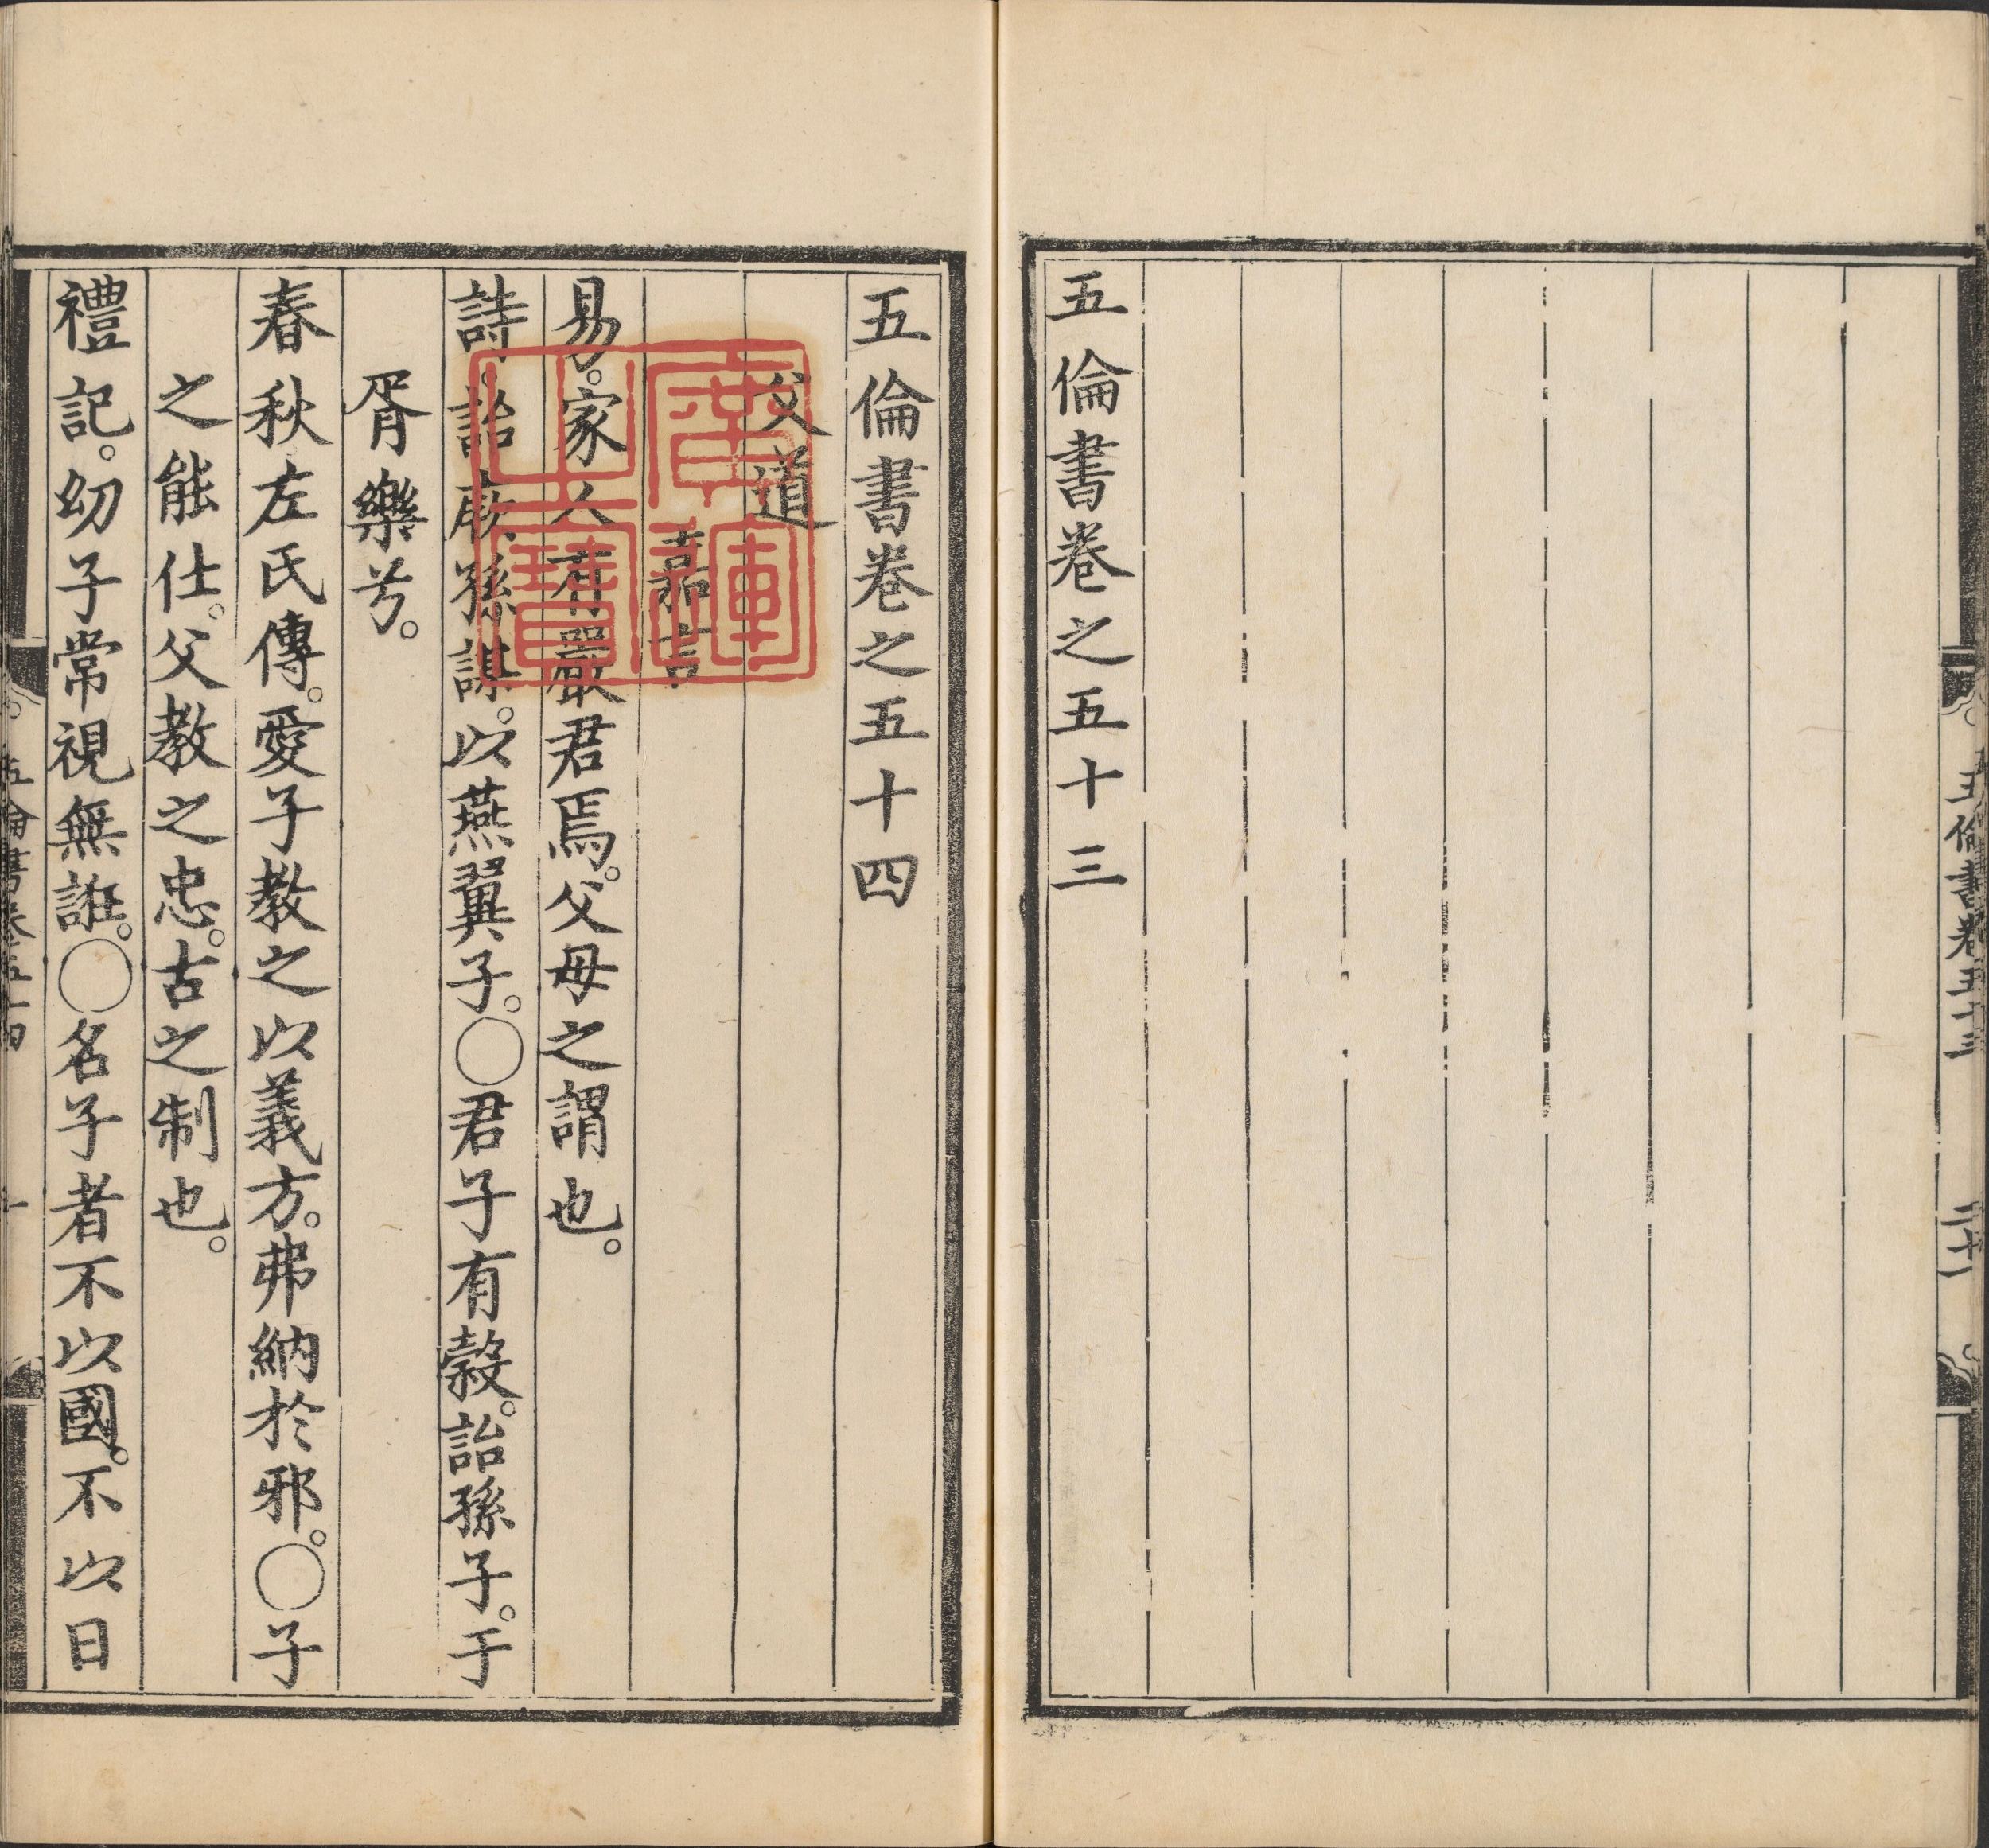 五倫書卷之五十三
五倫書卷五十三
二十一
五倫書卷之五十四
父道
嘉言
易。家人有嚴君焉。父母之謂也。
詩。詒厥孫謀。以燕翼子。〇君子有穀。詒孫子。于
胥樂兮。
春秋左氏傳。愛子教之以義方。弗納於邪。〇子
之能仕。父教之忠。古之制也。
禮記。幼子常視無誑。〇名子者不以國。不以日
五倫書卷五十四
一
廣運之寶